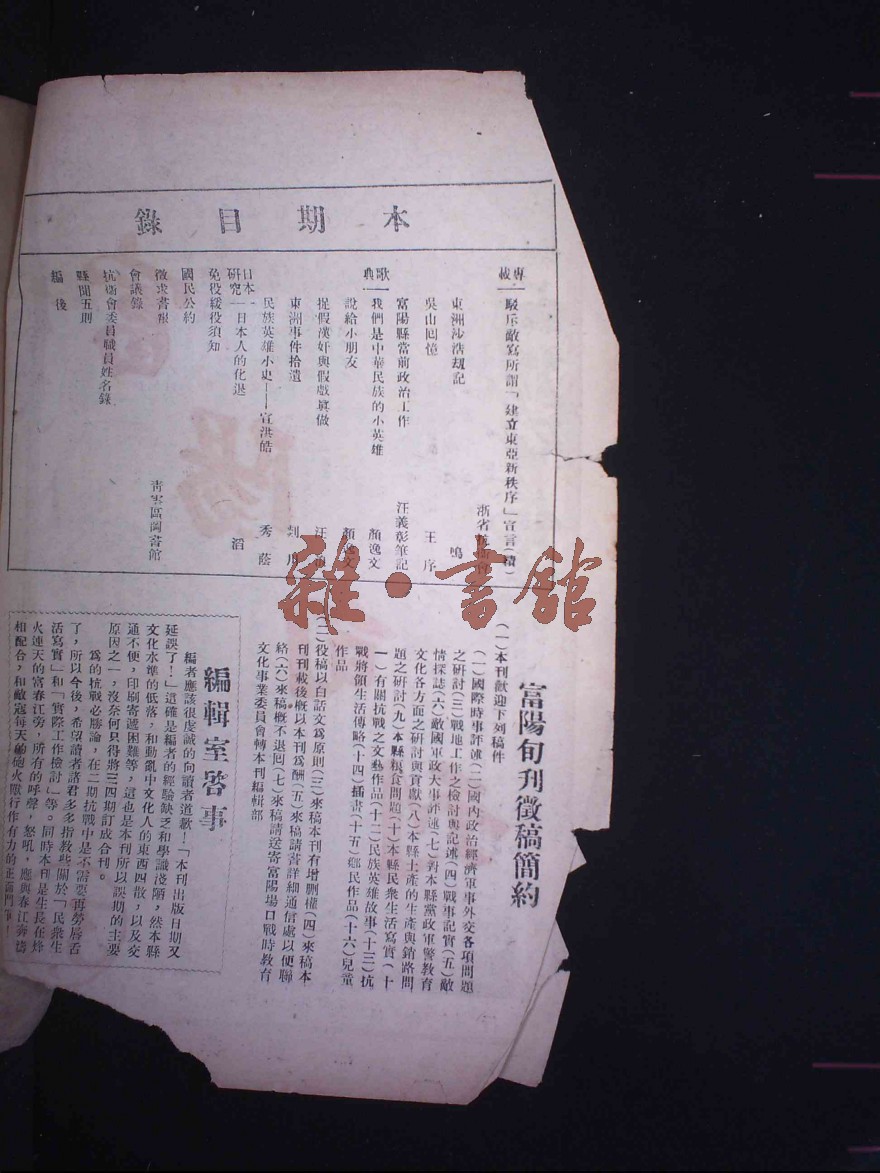 本期目錄
專載
駁斥敵寫所謂「建立東亞新秩序」宣言(續)
東洲沙浩刼記 鳴
吳山囘憶 王序
富陽縣當前政治工作 汪義彰筆記
歌典
我們是中華民族的小英雄 顏逸文
說給小朋友 顏逸文
捉假漢奸與假戲眞做 汪
東洲事件拾遺
民族英雄小史——宣洪皓 秀蔭
日本研究
日本人的化退 滔
免役緩役須知
國民公約
徵求書報 青雲區圖書館
會議錄
抗衞會委員職員姓名錄
縣聞五則
編後
富陽旬刋徵稿簡約
(一)本刊歡迎下列稿件
(一)國際時事評述(二)國內政治經濟軍事外交各項問題
之研討(三)戰地工作之檢討與記述(四)戰事記實(五)敵
情探誌(六)敵國軍政大事評述(七)對本縣黨政軍警教育
文化各方面之研討與貢獻(八)本縣土產的生產與銷路問
題之研討(九)本縣糧食問題(十)本縣民衆生活寫實(十
一)有關抗戰之文藝作品(十二)民族英雄故事(十三)抗
戰將領生活傳略(十四)插畫(十五)鄉民作品(十六)兒童
作品
(二)役稿以白話文爲原則(三)來稿本刊有增删權(四)來稿本
刊刊載後概以本刊爲酬(五)來稿請書詳細通信處以便聯
絡(六)來稿概不退囘(七)來稿請送寄富陽場口戰時教育
文化事業委員會轉本刊編輯部
編輯室啓事
編者應該很虔誠的向讀者道歉!「本刊出版日期又
延誤了!」這確是編者的經驗缺乏和學識淺陋,然本縣
文化水準的低落,和動亂中文化人的東西四散,以及交
通不便,印刷寄遞困難等,這也是本刊所以誤期的主要
原因之一,沒奈何只得將三四期訂成合刊。
爲的抗戰必勝論,在二期抗戰中是不需要再勞唇舌
了,所以今後,希望讀者諸君多多指教些關於「民衆生
活寫實」和「實際工作檢討」等。同時本刊是生長在烽
火連天的富春江旁,所有的呼聲,怒吼,應與春江壽濤
相配合,和敵寇每天的砲火敵行作有力的正面鬥爭!
雜·書館